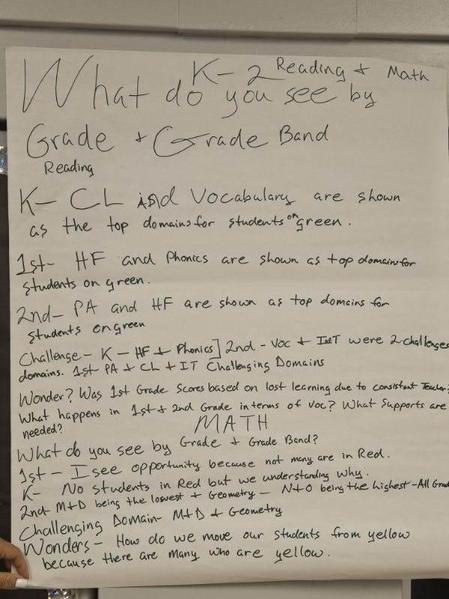 K-2 Reading + Math
What do you see by
Grade + Grade Band
Reading
K- CL and Vocabulary are shown
as the top domains for students on green.
1st- HF and Phonics are shown as top domains for
students on green.
2nd- PA and HF are shown as top domains for
students on green
Challenge- K- HF + Phonics] 2nd - Voc + InIT were 2 challenges
domains. 1st PA + CL + IT Challenging Domains
Wonder? Was 1st Grade Scores based on lost learning due to consistent Teacher?
What happens in 1st + 2nd Grade in terms of Voc? What Supports are
needed?
MATH
What do you see by Grade + Grade Band?
1st - I see opportunity because not many are in Red.
K- No students in Red but we understanding why.
2nd M+D being the lowest + Geometry - N+O being the highest - All Grad
Challenging Domain- M+D + Geometry
Wonders- How do we move our students from yellow
because there are many who are yellow.